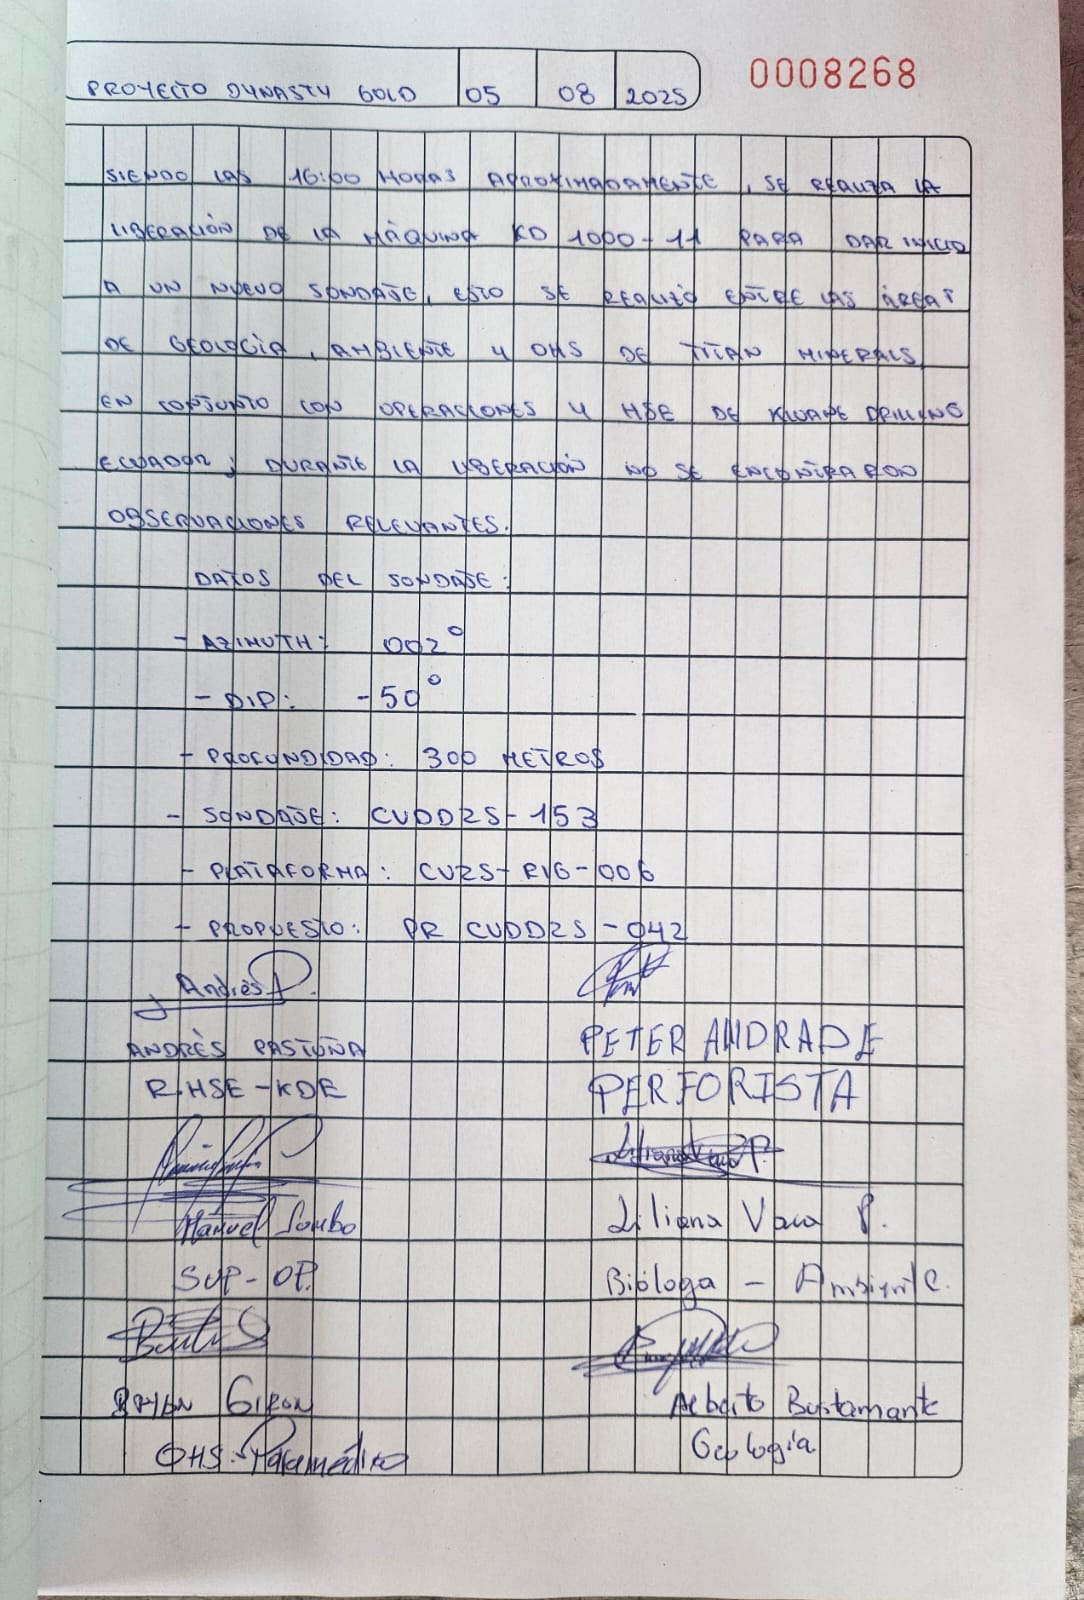 PROYECTO DYNASTY GOLD 05 08 2025 0008268
SIENDO LAS 16:00 HORAS APROXIMADAMENTE, SE REALIZA LA
LIBERACIÓN DE LA MÁQUINA KD 1000-11 PARA DAR INICIO
A UN NUEVO SONDAJE, ESTO SE REALIZÓ ENTRE LAS ÁREAS
DE GEOLOGÍA, AMBIENTE Y OHS DE TITAN MINERALS,
EN CONJUNTO CON OPERACIONES Y HSE DE KLUANE DRILLING
ECUADOR; DURANTE LA LIBERACIÓN NO SE ENCONTRARON
OBSERVACIONES RELEVANTES.
DATOS DEL SONDAJE:
- AZIMUTH: 002°
- DIP: -50°
- PROFUNDIDAD: 300 METROS
- SONDAJE: CVDD25-153
- PLATAFORMA: CV25-RIG-006
- PROPUESTO: PR CVDD25-042
Andrés P.
ANDRÉS PASTUÑA PETER ANDRADE
R.HSE-KDE PERFORISTA
Liliana Vaca P.
Manuel Liliana Vaca P.
SUP-OP. Bióloga - Ambiente.
BRYAN GIRON Alberto Bustamante
OHS-Paramédico Geología